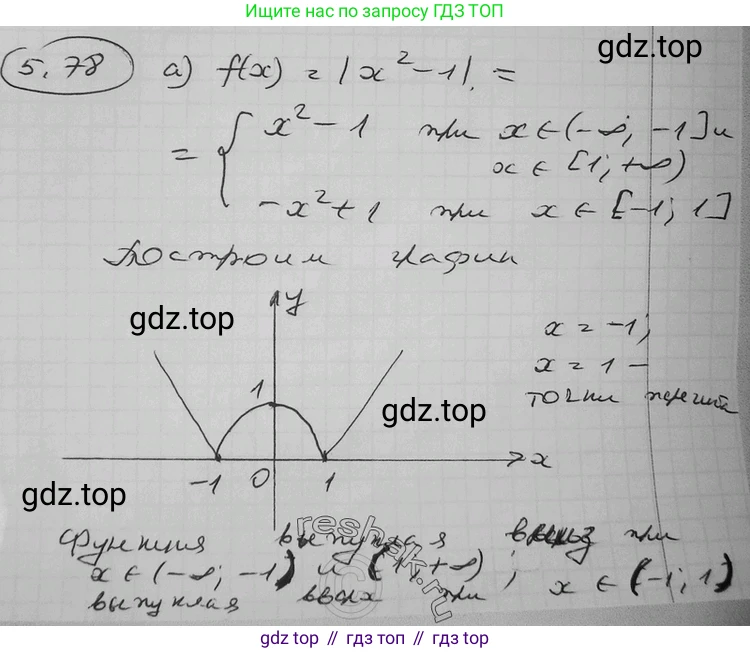 Ищите нас по запросу ГДЗ ТОП
5.78 а) f(x) = |x² - 1| =
gdz.top
= { x² - 1 при x ∈ (-∞; -1] и
x ∈ [1; +∞)
-x² + 1 при x ∈ [-1; 1]
Построим график
gdz.top
y
x = -1;
x = 1 -
точки перегиба
1
gdz.top
-1 0 1 x
gdz.top
Функция выпуклая вниз при
x ∈ (-∞; -1) и (1; +∞); x ∈ (-1; 1)
выпуклая вверх при
reshak.ru
gdz top // гдз топ // гдз top